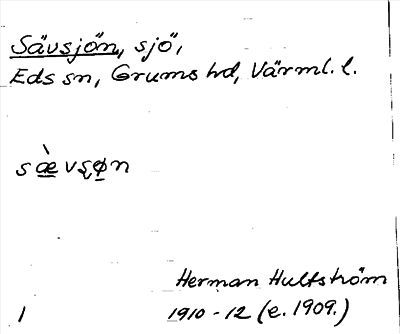 Sävsjön, sjö,
Eds sn, Grums hd, Värml. l.
sæ̀vʂøn
Herman Hultström
1910-12 (e. 1909.)
1